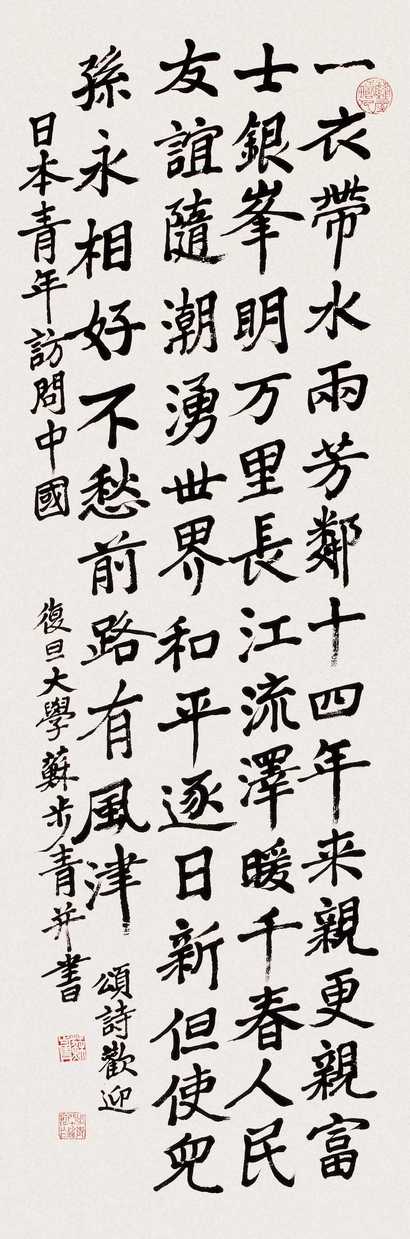 一衣帶水兩芳鄰十四年来親更親富
士銀峯明万里長江流澤暖千春人民
友誼隨潮湧世界和平逐日新但使兒
孫永相好不愁前路有風津
頌詩歡迎
日本青年訪問中國
復旦大學蘇步青并書